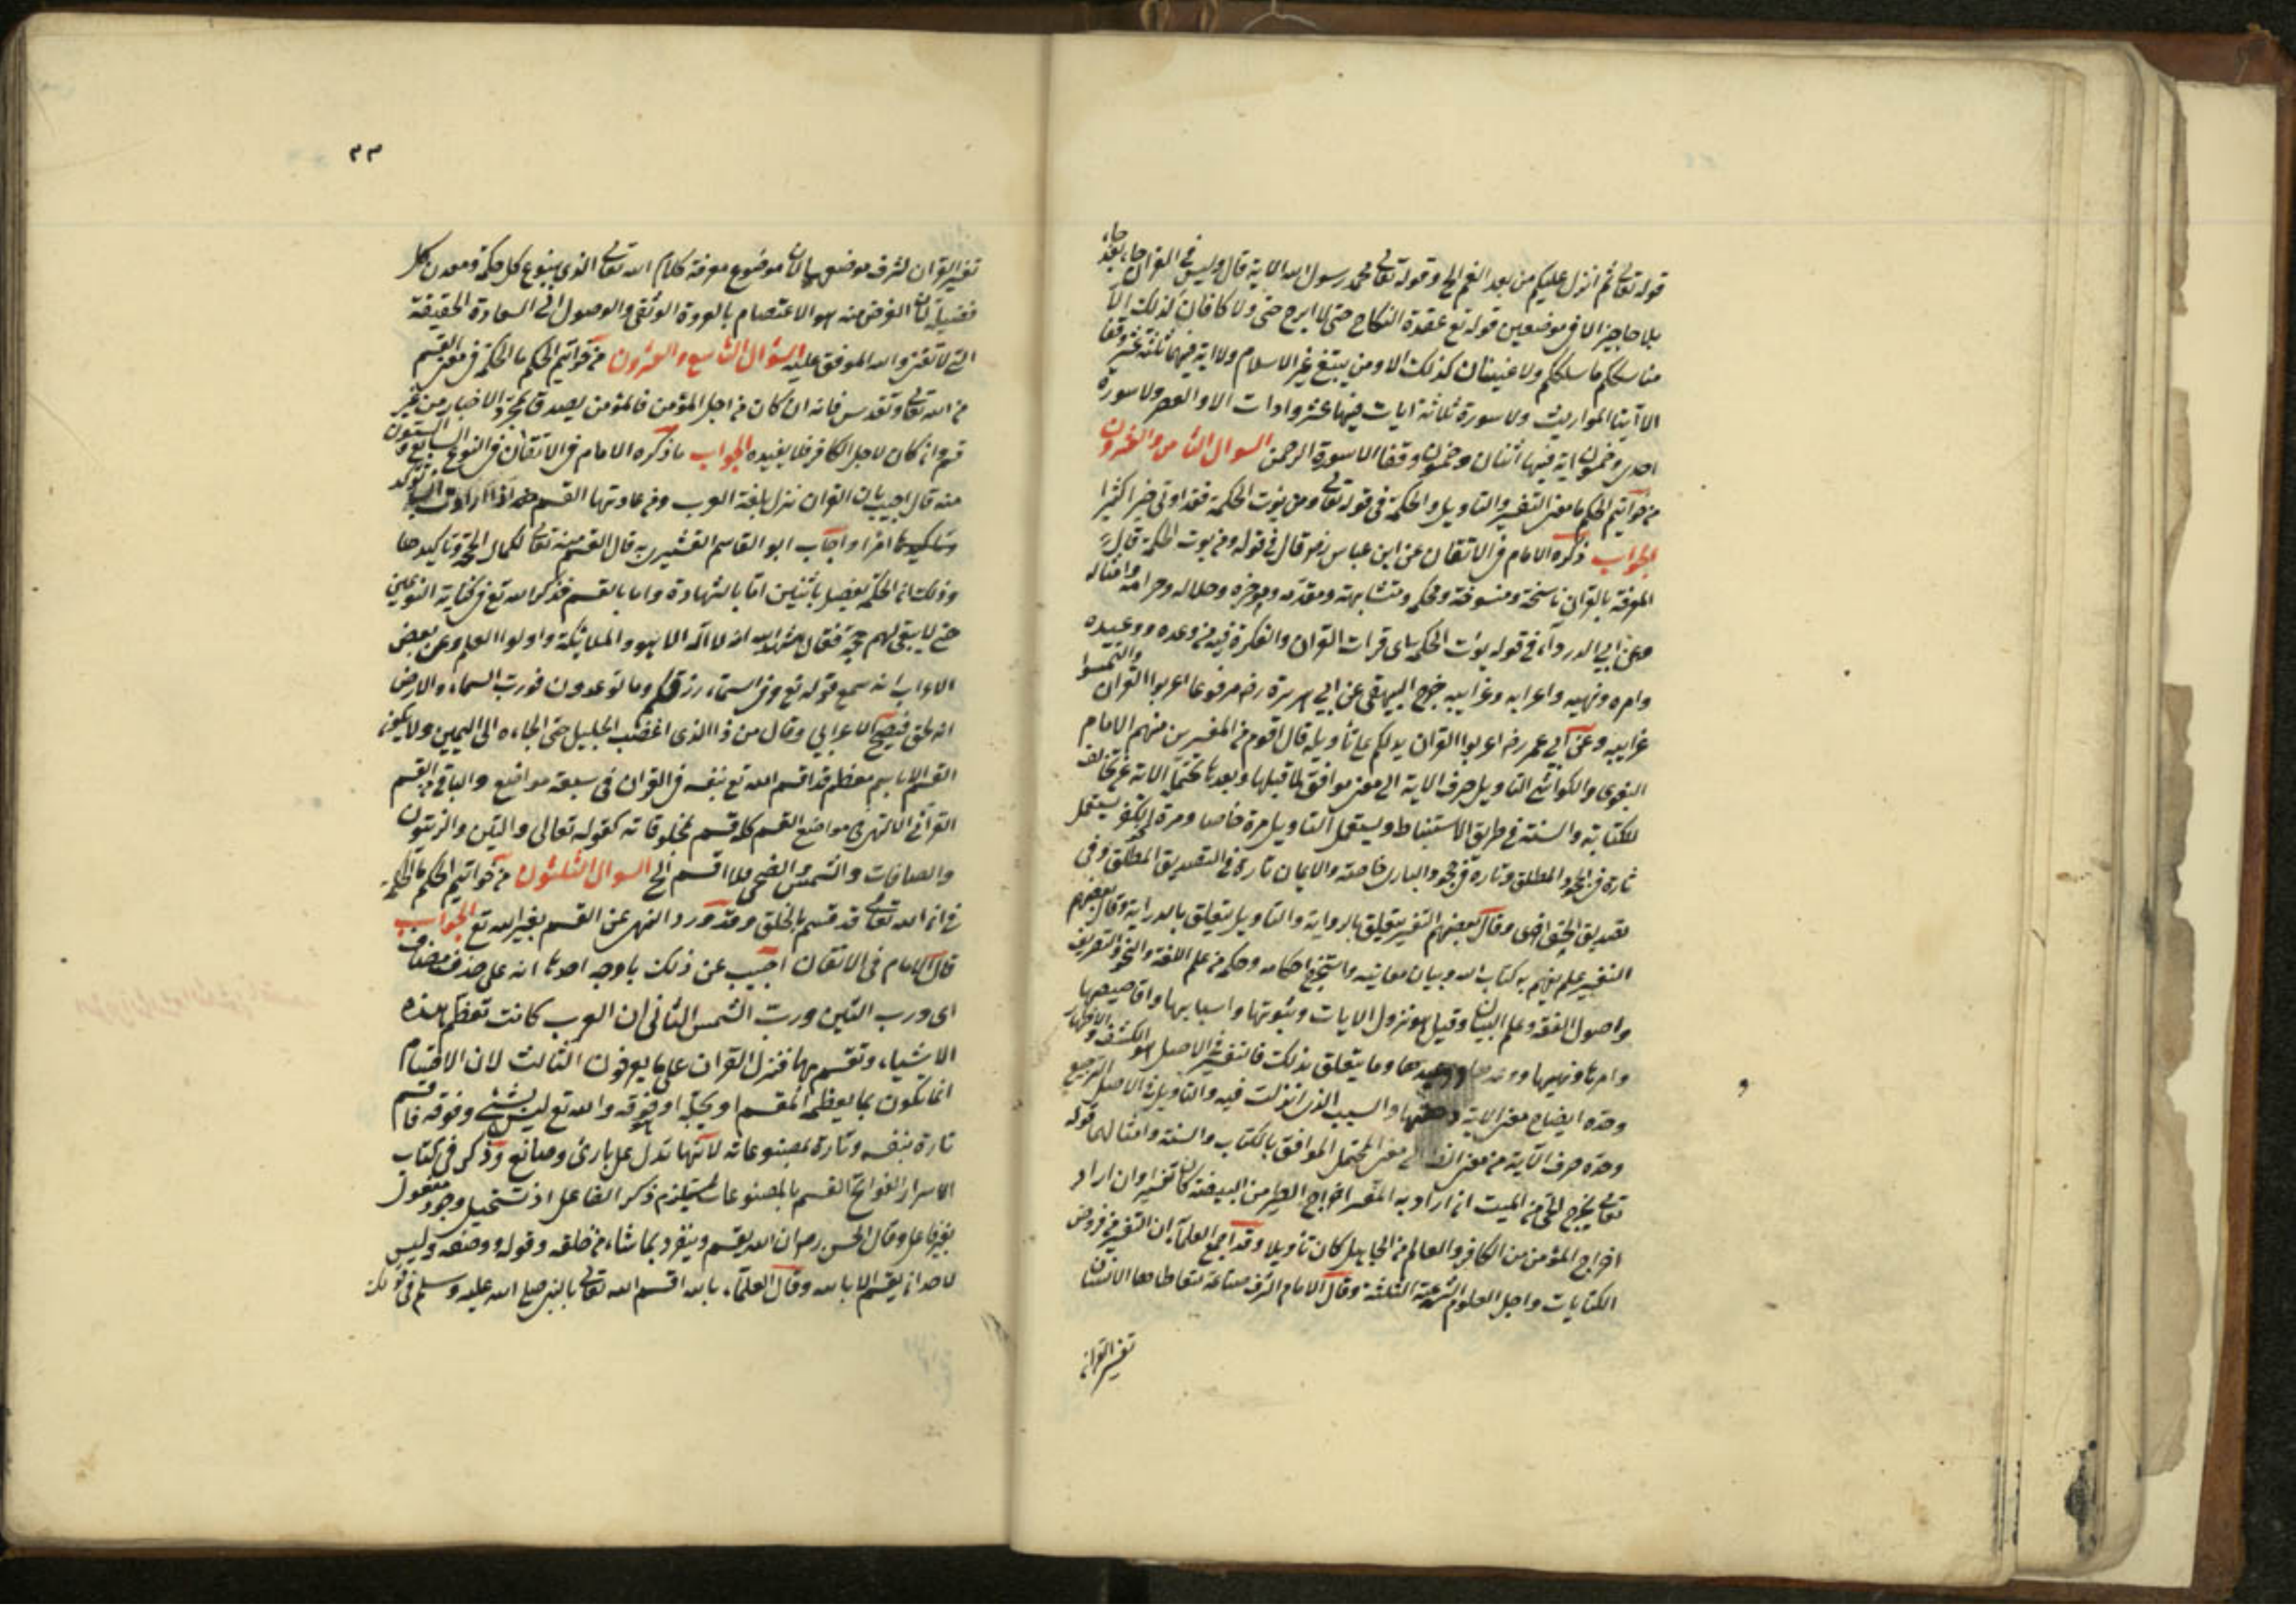 قوله تعالى ثم انزل عليكم من بعد الغم الخ وقوله تعالى محمد رسول الله الاية قال وليس في القران حاء بعد حاء
بلا حاجز الا في موضعين قوله تع عقدة النكاح حتى لا ابرح حتى ولا كافان كذلك الا
مناسككم ما سلككم ولا غينان كذلك الا ومن يبتغ غير الاسلام ولا اية فيها ثلثة عشر وقفا
الا آيتا المواريث ولا سورة ثلاثة ايات فيها عشر واوات الا والعصر ولا سورة
احدى وخمسون اية فيها اثنان وخمسون وقفا الا سورة الرحمن السوال الثامن والعشرون
من خواتيم الحكم ما معنى التفسير والتاويل والحكمة في قوله تعالى ومن يؤت الحكمة فقد اوتي خيرا كثيرا
الجواب ذكره الامام في الاتقان عن ابن عباس رضه قال في قوله ومن يوت الحكمة قال
المعرفة بالقران ناسخه ومنسوخه ومحكمه ومتشابهه ومقدمه وموخره وحلاله وحرامه وامثاله
وعن ابي الدرداء في قوله يؤت الحكمة اى قرات القران والفكرة فيه من وعده ووعيده
وامره ونهيه واعرابه وغرايبه خرج البيهقي عن ابي هريرة رضه مرفوعا اعربوا القران والتمسوا
غرايبه وعن ابي عمر رضه اعربوا القران يدلكم على تأويله قال قوم من المفسرين منهم الامام
البغوى والكواشي التاويل صرف الاية الى معنى موافق لما قبلها وبعدها تحتمله الاية غير مخالف
للكتاب والسنة في طريق الاستنباط ويستعمل التاويل مرة خاصا ومرة الكفر يستعمل
تارة في الجحود المطلق وتارة في جحود البارى خاصة والايمان تارة في التصديق المطلق وفى
تصديق الحق اخرى وقال بعضهم التفسير يتعلق بالرواية والتاويل يتعلق بالدراية وقال بعضهم
التفسير علم يفهم به كتاب الله وبيان معانيه واستخراج احكامه وحكمه من علم اللغة والنحو والتصريف
واصول الفقه وعلم البيان وقيل هو نزول الايات وشئونها واسبابها واقاصيصها
وامرها ونهيها ووعدها ووعيدها وما يتعلق بذلك فالتفسير في الاصل هو الكشف والاظهار
وحده ايضاح معنى الاية وقصتها والسبب الذى انزلت فيه والتاويل في الاصل الترجيع
وحده صرف الآية من معنى الى معنى المحتمل الموافق بالكتاب والسنة وامثالهما قوله
تعالى يخرج الحي من الميت ان اراد به المفسر اخراج الطير من البيضة كان تفسيرا وان اراد
اخراج المؤمن من الكافر والعالم من الجاهل كان تأويلا وقد اجمع العلماء ان التفسير من فروض
الكفايات واجل العلوم الشرعية الثلثة وقال الامام اشرف صناعة يتعاطاها الانسان
تفسير القران
٣٣
تفسير القران لشرف موضوعها لان موضوع معرفة كلام الله تعالى الذى ينبوع كل حكمة ومعدن كل
فضيلة لان الغرض منه هو الاعتصام بالعروة الوثقى والوصول الى السعادة الحقيقة
التي لا تفنى والله الموفق عليه السؤال التاسع والعشرون من خواتيم الحكم ما الحكمة في معنى القسم
من الله تعالى وتقدس فانه ان كان من اجل المؤمن فالمؤمن يصدق بمجرد الاخبار من غير
قسم وان كان لاجل الكافر فلا يفيده الجواب ما ذكره الامام في الاتقان في النوع السابع والستون
منه قال اجيب بان القران نزل بلغة العرب ومن عادتها القسم اذا ارادت ان توكد
امرا واجاب ابو القاسم القشيرى به قال القسم منه تعالى لكمال الحجة وتاكيدها
وذلك ان الحكم يفصل باثنين اما بالشهادة واما بالقسم فذكر الله تع في كتابه النوعين
حتى لا يبقى لهم حجة فقال شهد الله انه لا اله الا هو والملايكة واولوا العلم وعن بعض
الاعراب انه سمع قوله تع وفى السماء رزقكم وما توعدون فورب السماء والارض
انه لحق فصيح الاعرابي وقال من ذا الذى اغضب الجليل حتى الجاءه الى اليمين ولا يكون
القسم الا باسم معظم قد اقسم الله تع بنفسه في القران في سبعة مواضع والباقي من القسم
القرآني مواضع القسم كله قسم بمخلوقاته كقوله تعالى والتين والزيتون
والصافات والشمس والضحى فلا اقسم الخ السوال الثلثون من خواتيم الحكم ما الحكمة
في ان الله تعالى قد قسم بالخلق وقد ورد النهى عن القسم بغير الله تع الجواب
قال الامام فى الاتقان اجيب عن ذلك باوجه احدها انه على حذف مضاف
اى ورب التين ورب الشمس الثانى ان العرب كانت تعظم هذه
الاشياء وتقسم بها فنزل القران على ما يعرفون الثالث لان الاقسام
انما يكون بما يعظمه المقسم او يجله او فوقه والله تع ليس شئ وفوقه فاقسم
تارة بنفسه وتارة بمصنوعاته لانها تدل على بارئ وصانع وذكر في كتاب
الاسرار الفواتح القسم بالمصنوعات يستلزم ذكر الفاعل اذ تستحيل وجود مفعول
بغير فاعل وقال الحسن رضه ان الله يقسم وينفرد بما شاء من خلقه وقوله ووصفه وليس
لاحد ان يقسم الا بالله وقال العلماء بالله اقسم الله تعالى بالنبي صلى الله عليه وسلم في قوله